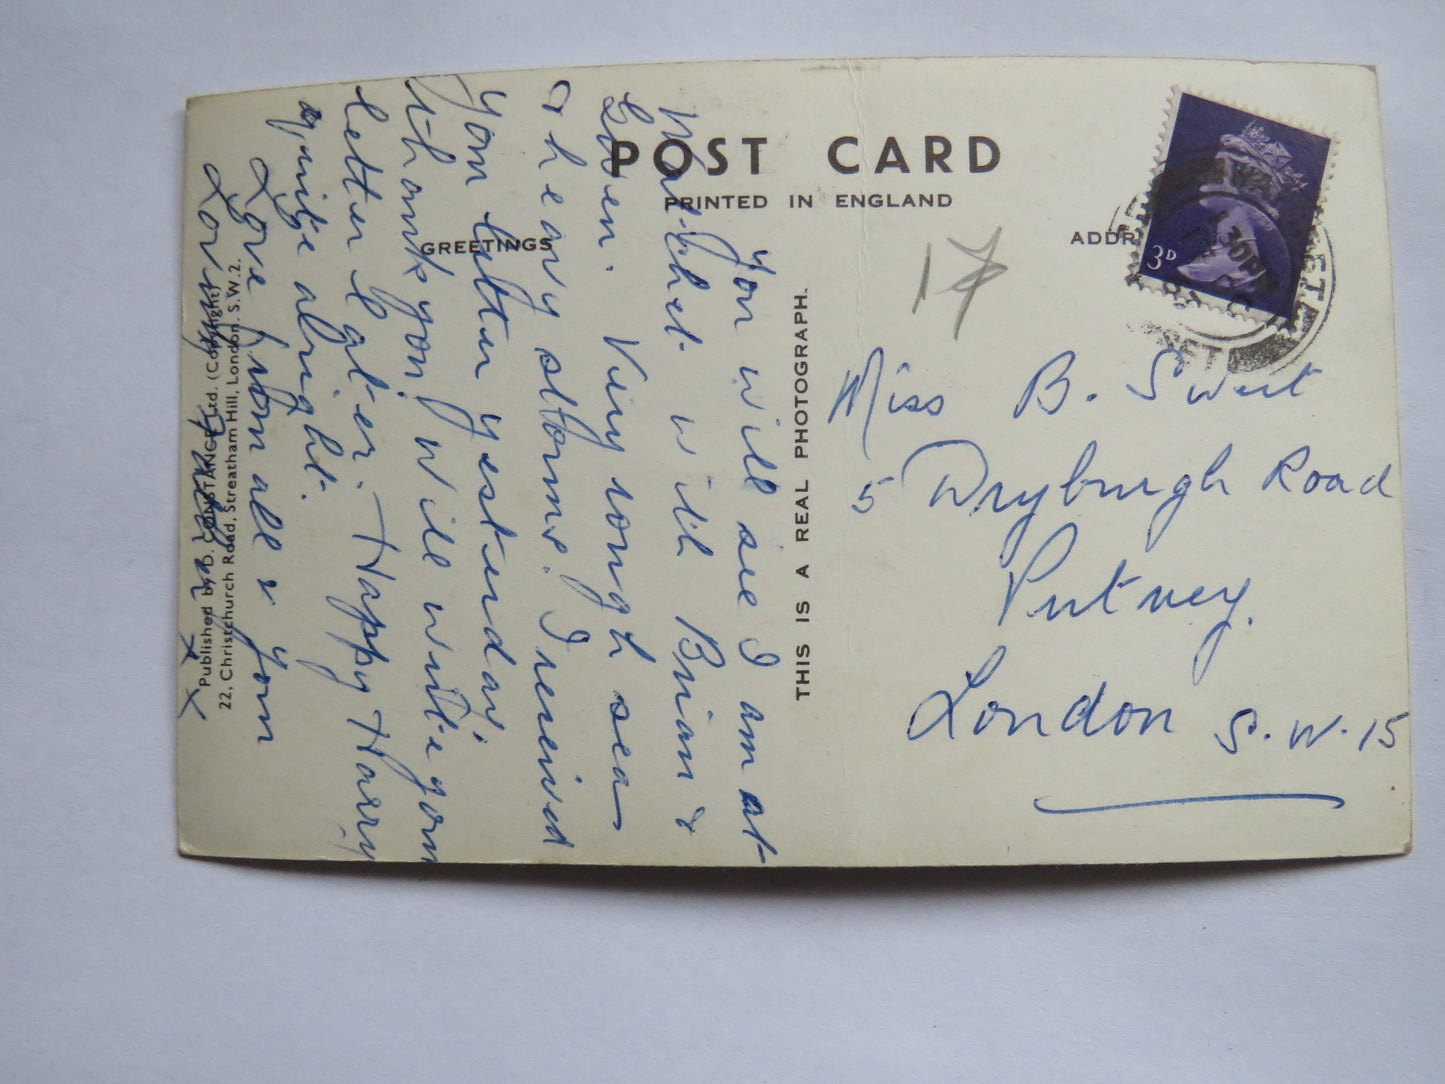 POST CARD
PRINTED IN ENGLAND
GREETINGS
ADDR
THIS IS A REAL PHOTOGRAPH.
Published by D. CONSTANCE Ltd. (Copyright)
22, Christchurch Road, Streatham Hill, London, S.W.2.
3D
17
Miss B. Sweet
5 Dryburgh Road
Putney.
London S.W.15
You will see I am at
Watchet with Brian &
Gwen. Very rough sea
& heavy storms. I received
your letter yesterday
thank you, will write you
letter later. Happy Harry
quite alright.
Love from all & your
Loving
X X